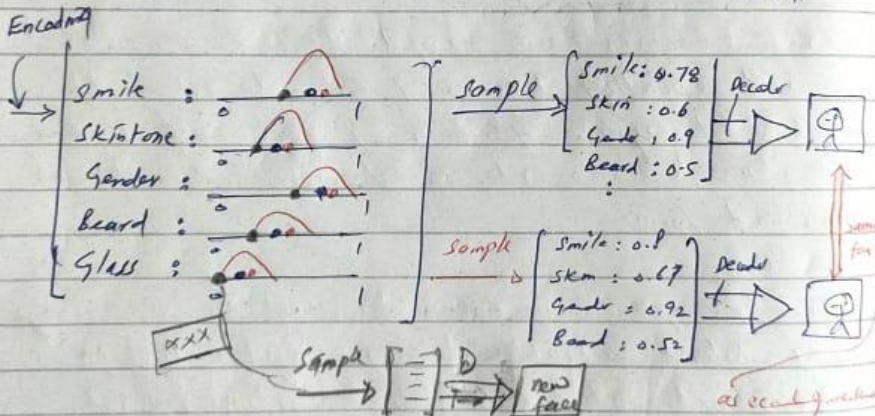 Encoding
Smile : 0 1
Skintone : 0 1
Gender : 0 1
Beard : 0 1
Glass : 0 1
Sample
Smile : 0.78
Skin : 0.6
Gender : 0.9
Beard : 0.5
:
Decoder
Sample
Smile : 0.8
Skin : 0.67
Gender : 0.92
Beard : 0.52
Decoder
same
xxx
Sample
D
new
face